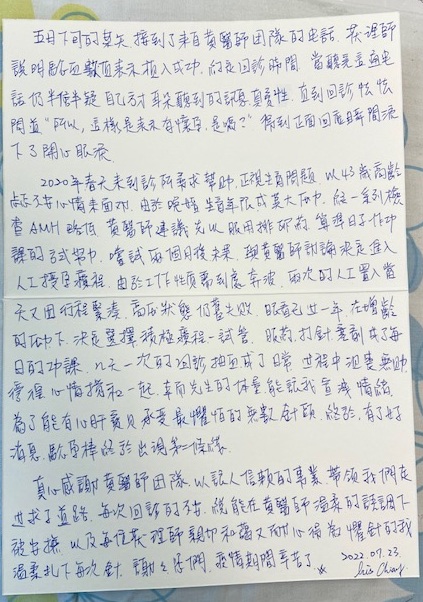 五月下旬的某天,接到了來自黃醫師團隊的電話,護理師
說明驗血數值表示植入成功,約定回診時間,當聽是這通電
話仍半信半疑自己方耳朵聽到的訊息真實性,直到回診怯怯
問道"所以,這樣是表示有懷孕,是嗎?"得到正面回應瞬間流
下了開心眼淚。
2020年春天來到診所尋求幫助,正視生育問題,以43歲高齡
忐忑不安心情來面对,由於晚婚生育年紀成莫大压力,做一系列檢
查AMH略低,黃醫師建議先以服用排卵药,算準日子作功
課的方式努力,嚐試兩個月後未果,與黃醫師討論決定進入
人工授孕療程,由於工作性質需到處奔波,兩次的人工置入當
天又因行程緊湊,高压狀態仍舊失敗,眼看已廿一年,在增齡
的压力下,決定選擇積極療程-試管,服药,打針、塞劑成了每
日的功課,幾天一次的回診抽血成了日常,過程中沮喪無助
徬徨心情攪和一起,幸而先生的体重能讓我宣洩情緒,
為了能有心肝寶貝承受最懼怕的無數針頭,終於,有了好
消息,驗孕棒終於出現第二條線。
真心感謝黃醫師團隊,以讓人信賴的專業,帶領我們在
求子道路,每次回診的不安,總能在黃醫師溫柔的談話下
被安撫,以及每位護理師親切和藹又耐心,倘為懼針的我
溫柔扎下每次針,謝謝您們,疫情期間辛苦了
2022.07.23.
Iris Chiang